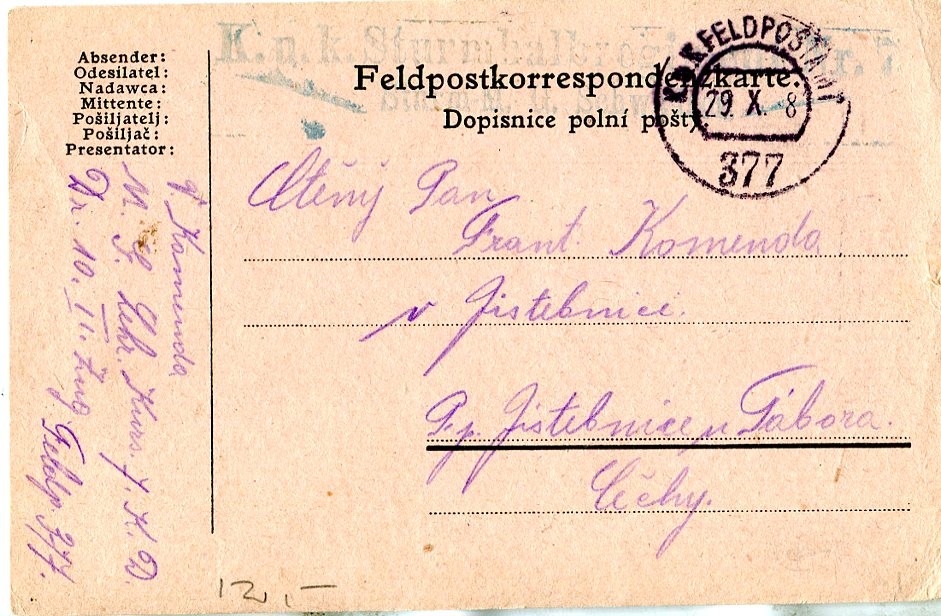 K. u. k. Sturmbat
Absender:
Odesilatel:
Nadawca:
Mittente:
Pošiljatelj:
Pošiljač:
Presentator:
Feldpostkorrespondenzkarte.
Dopisnice polní pošty.
K.u.K. FELDPOSTAMT
29. X. 8
377
Ctěný Pan
Frant. Komenda
v Jistebnice.
Pp. Jistebnice u Tábora.
Čéchy.
Komenda
M. G. Lehr. Kurs K. D.
Dr. 10. II. Zug Feldp. 377.